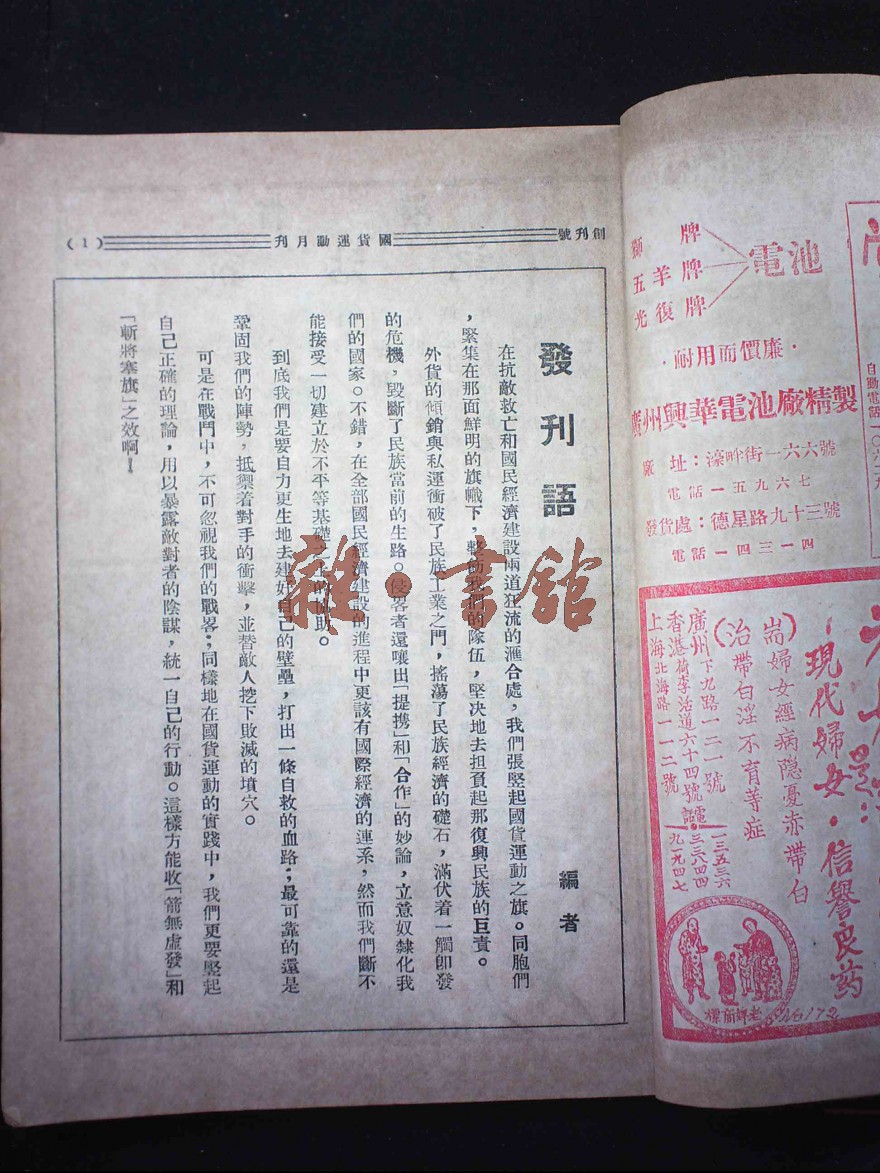 創刊號
國貨運動月刊
(1)
發刊語
編者
在抗敵救亡和國民經濟建設兩道狂流的滙合處，我們張竪起國貨運動之旗。同胞們
，緊集在那面鮮明的旗幟下，我們的隊伍，堅决地去担負起那復興民族的巨責。
外貨的傾銷與私運衝破了民族工業之門，搖蕩了民族經濟的礎石，滿伏着一觸卽發
的危機，毀斷了民族當前的生路。侵畧者還嚷出「提携」和「合作」的妙論，立意奴隸化我
們的國家。不錯，在全部國民經濟建設的進程中更該有國際經濟的連系，然而我們斷不
能接受一切建立於不平等基礎上的助。
到底我們是要自力更生地去建好自己的壁壘，打出一條自救的血路；最可靠的還是
鞏固我們的陣勢，抵禦着對手的衝擊，並替敵人挖下敗滅的墳穴。
可是在戰鬥中，不可忽視我們的戰畧；同樣地在國貨運動的實踐中，我們更要竪起
自己正確的理論，用以暴露敵對者的陰謀，統一自己的行動。這樣方能收「箭無虛發」和
「斬將搴旗」之效啊！
雜·書館
獅牌
五羊牌
光復牌
電池
·耐用而價廉·
廣州興華電池廠精製
廠址：濠畔街一六六號
電話一五九六七
發貨處：德星路九十三號
電話一四三一四
自動電話
現代婦女·信譽良药
耑治
婦女經病隱憂赤帶白
帶白淫不育等症
廣州下九路一二一號
香港荷李活道六十四號
上海北海路一一二號
電話
一三五三六
三三六四四
九一九四七